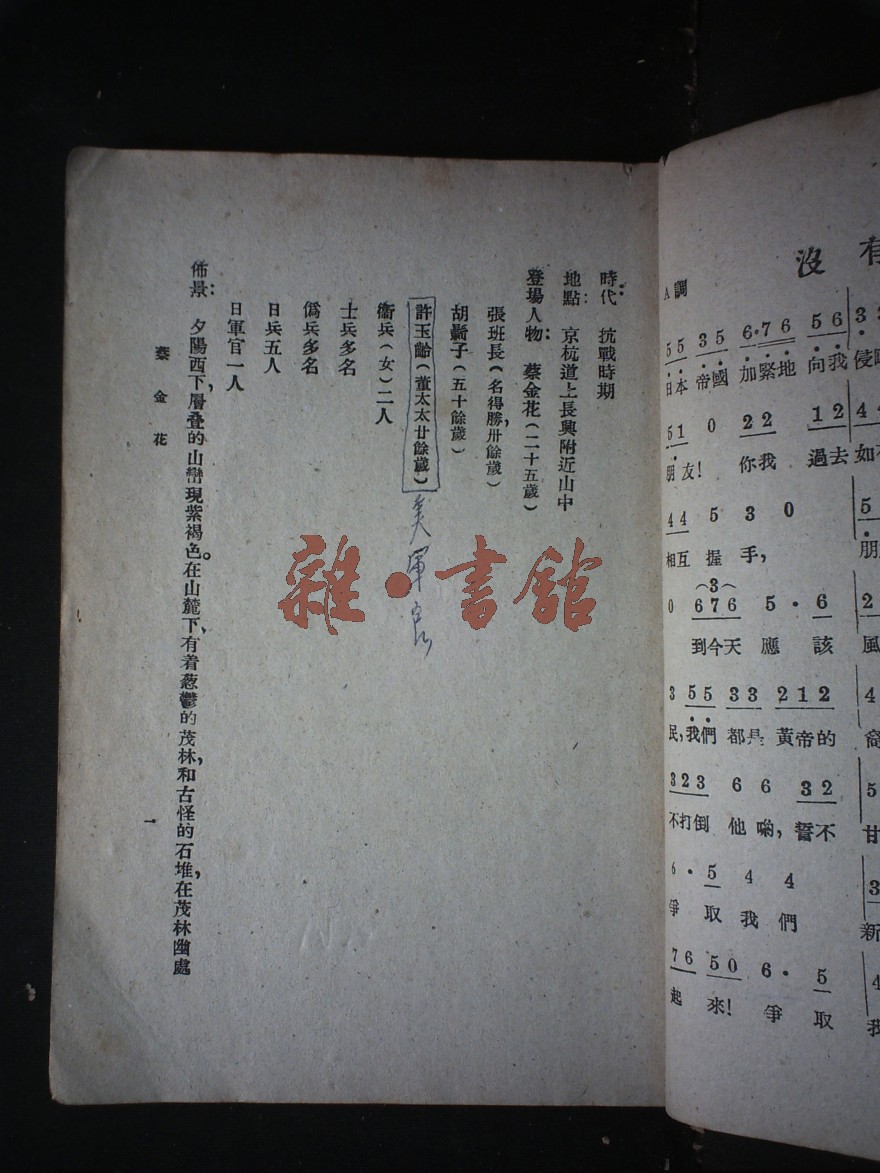 時代：抗戰時期
地點：京杭道上長興附近山中
登場人物：蔡金花（二十五歲）
張班長（名得勝，卅餘歲）
胡鬍子（五十餘歲）
許玉齡（董太太廿餘歲）
衞兵（女）二人
士兵多名
僞兵多名
日兵五人
日軍官一人
佈景：夕陽西下，層叠的山巒現紫褐色。在山麓下，有着葱鬱的茂林，和古怪的石堆，在茂林幽處
蔡金花
一
雜·書館
沒有
A調
5 5 3 5 6·7 6 5 6 3
日本 帝國 加緊地 向我 侵
5 1 0 2 2 1 2 4
朋友！ 你我 過去 如
4 4 5 3 0 5
相互 握 手， 朋
3
0 6 7 6 5 · 6 2
到今天 應 該 風
3 5 5 3 3 2 1 2 4
民，我們 都是 黃帝的
3 2 3 6 6 3 2 5
不打倒 他喲，誓不 甘
6 · 5 4 4 3
爭 取 我 們 新
7 6 5 0 6 · 5 4
起 來！ 爭 取 我